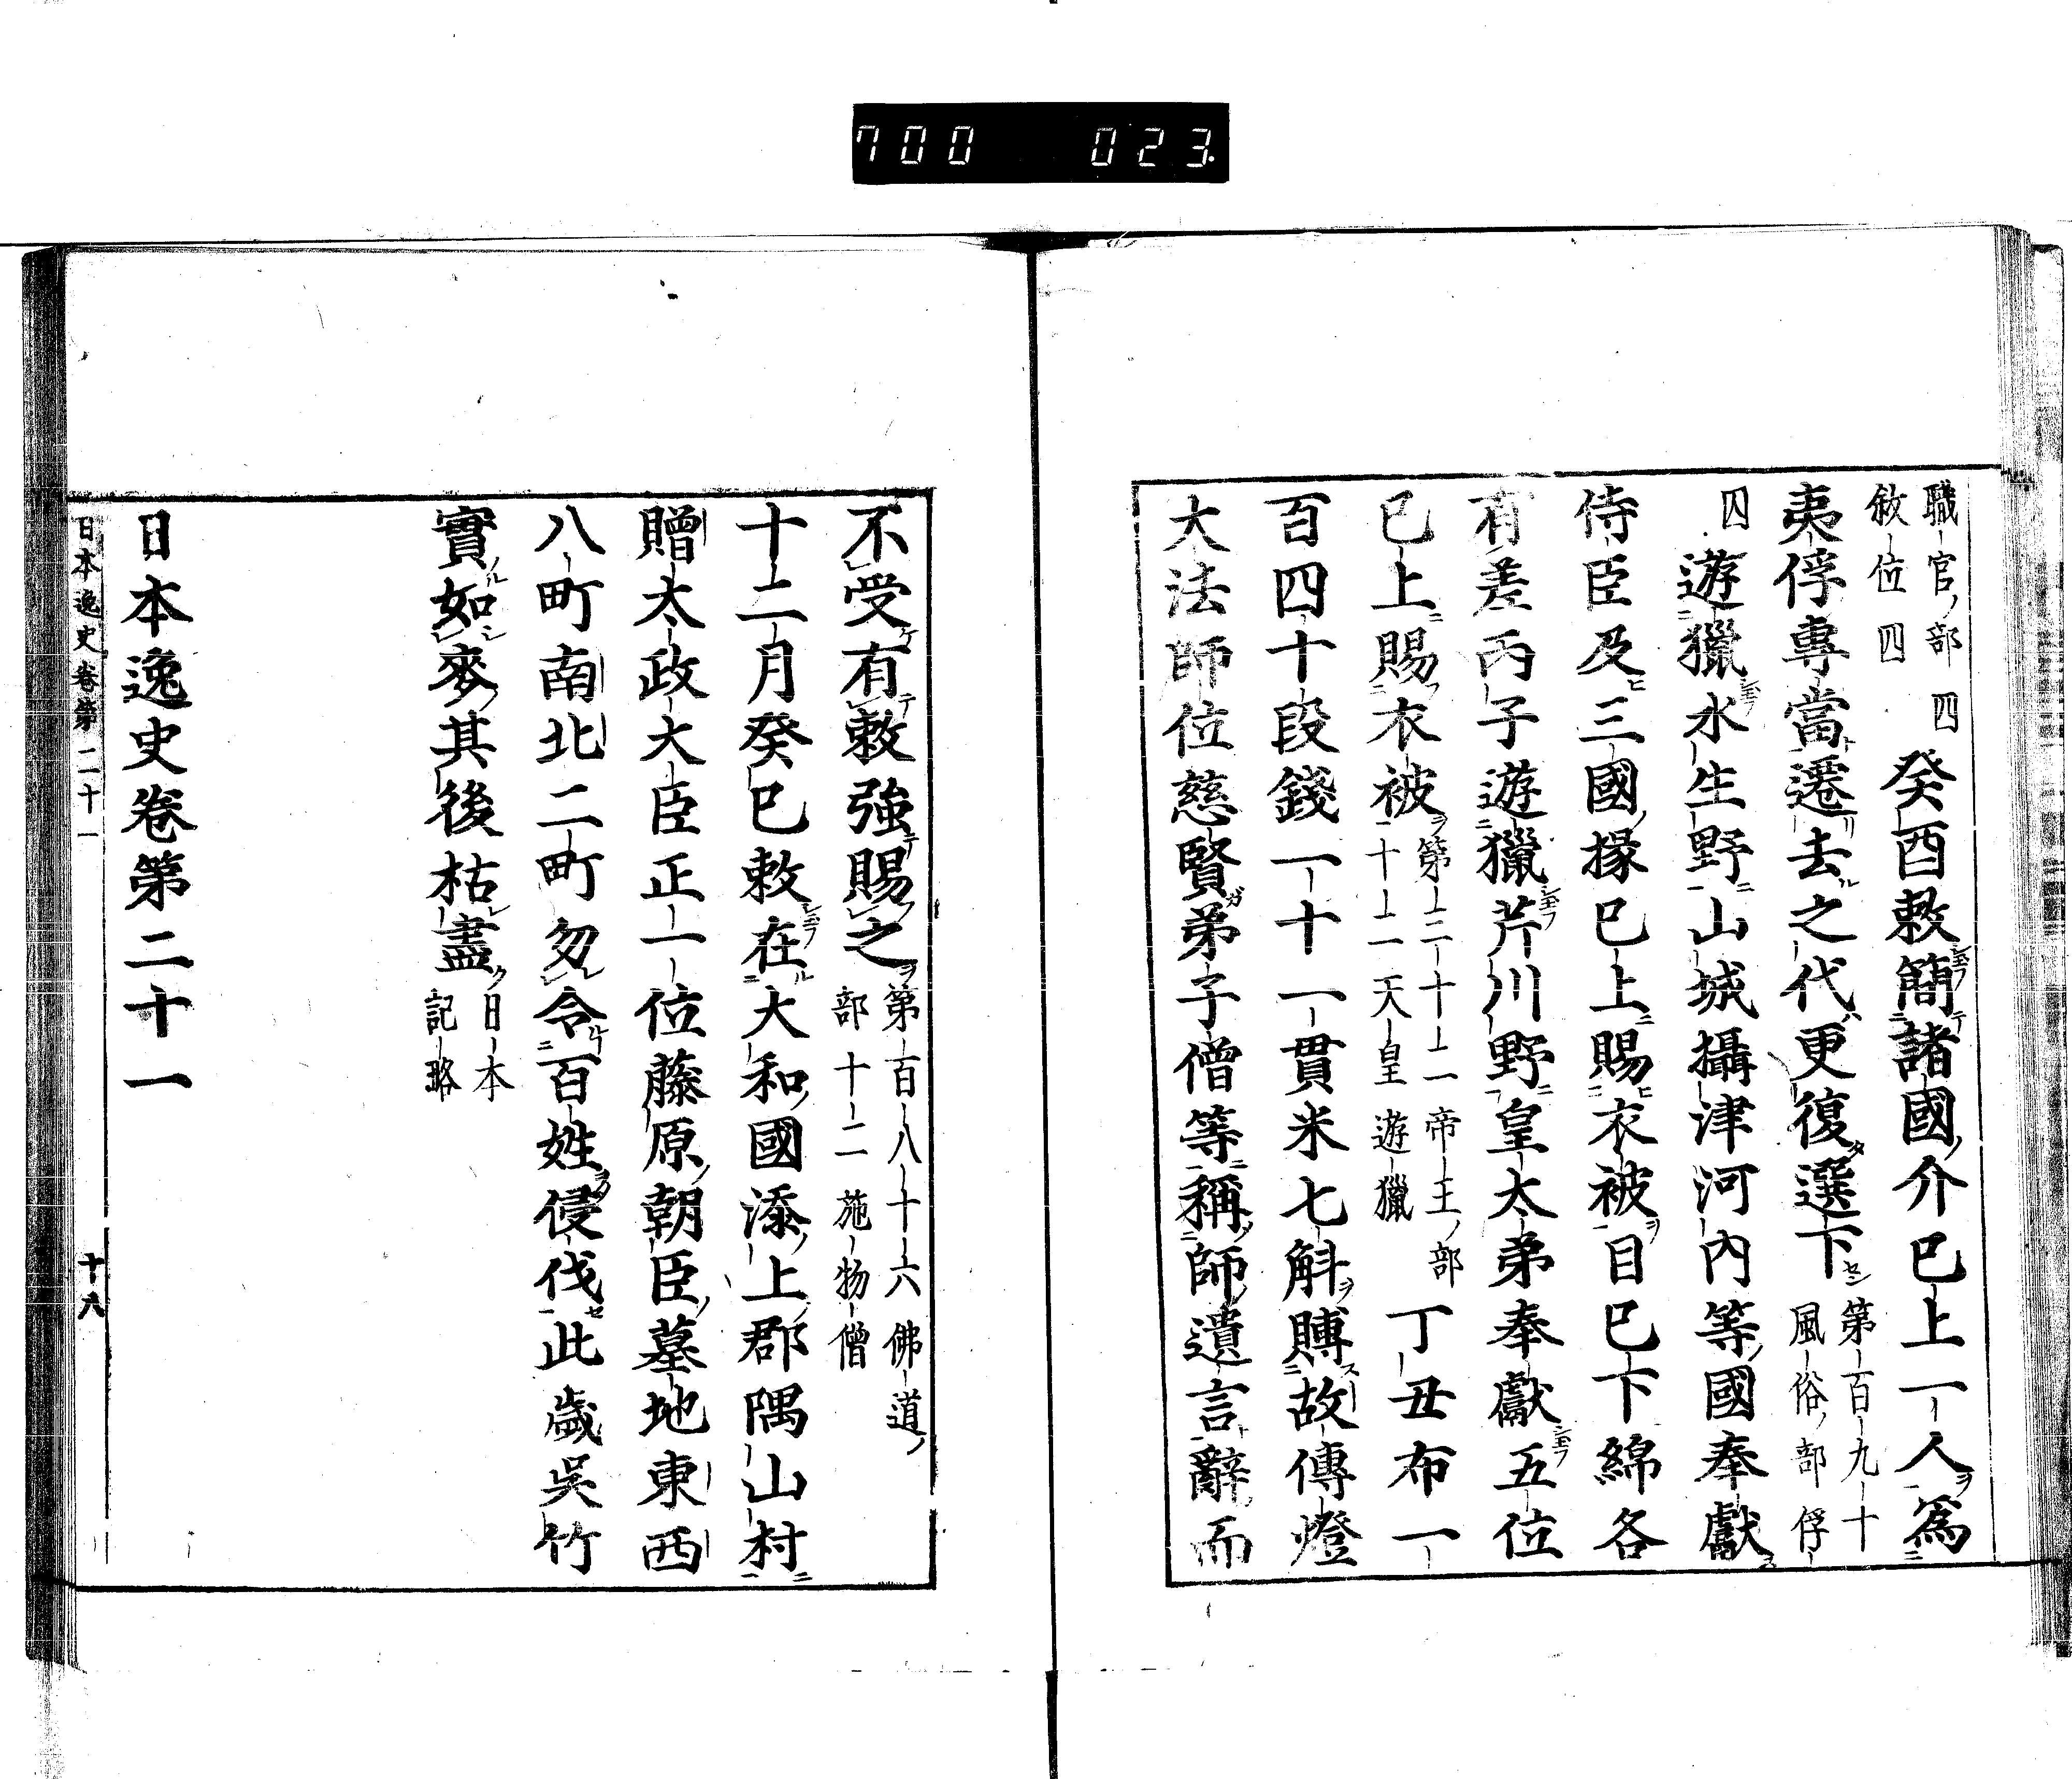 700 023
職官ノ部 四
敘位 四 癸酉敕簡諸國介已上一人爲
夷俘專當遷去之代更復選下 第百九十
風俗ノ部 俘
囚 遊獵水生野山城攝津河內等國奉獻
侍臣及三國掾已上賜衣被目已下綿各
有差丙子遊獵芹川野皇太弟奉獻五位
已上賜衣被 第三十二 帝王ノ部
十一 天皇遊獵 丁丑布一
百四十段錢一十一貫米七斛賻故傳燈
大法師位慈賢弟子僧等稱師遺言辭而
不受有敕強賜之 第百八十六 佛道ノ
部 十二 施物僧
十二月癸巳敕在大和國添上郡隅山村
贈太政大臣正一位藤原朝臣墓地東西
八町南北二町勿令百姓侵伐此歲吳竹
實如麥其後枯盡 日本
記略
日本逸史卷第二十一
日本逸史卷第二十一 十八